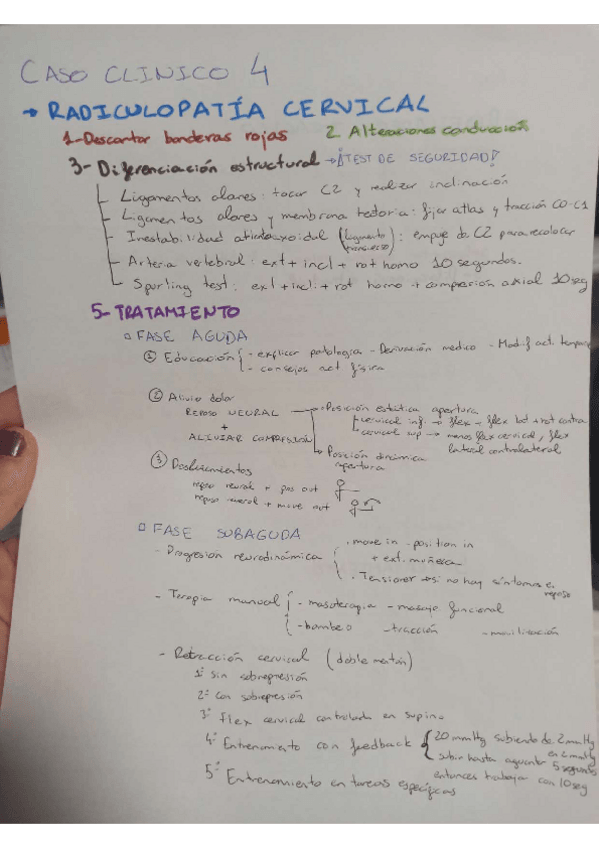 CASO CLINICO 4
→ RADICULOPATÍA CERVICAL
1-Descartar banderas rojas 2. Alteraciones conducción
3- Diferenciación estructural → ¡TEST DE SEGURIDAD!
Ligamentos alares: tocar C2 y realizar inclinación
Ligamentos alares y membrana tectoria: fijar atlas y tracción C0-C1
Inestabilidad atlontoaxoidal (ligamento transverso): empuje de C2 para recolocar
Arteria vertebral: ext + incl + rot homo 10 segundos.
Spurling test: ext + incl + rot homo + compresion axial 10 seg
5- TRATAMIENTO
FASE AGUDA
① Educación - explicar patologías - Derivación medico - Modif act. tempo
- consejos act física
② Alivio dolor
REPOSO NEURAL → Posición estática apertura
+ cervical inf. → flex + flex lat + rot contra
ALIVIAR COMPRESIÓN cervical sup → menos flex cervical, flex lateral contralateral
→ Posición dinámica apertura
③ Deslizamientos
reposo neural + pos out
reposo neural + move out
FASE SUBAGUDA
- Progresion neurodinámica . move in - position in + ext. muñeca
. Tensioner si no hay síntomas e. reposo
- Terapia manual - masoterapia - masaje funcional
- bombeo - tracción - movilización
- Retracción cervical (doble mentón)
1º sin sobrepresión
2º con sobrepresión
3º flex cervical controlada en supino
4º Entrenamiento con feedback 20 mmHg subiendo de 2 mmHg en 2 mmHg
subir hasta aguantar 5 segundos entonces trabajar con 10 seg
5º Entrenamiento en tareas específicas